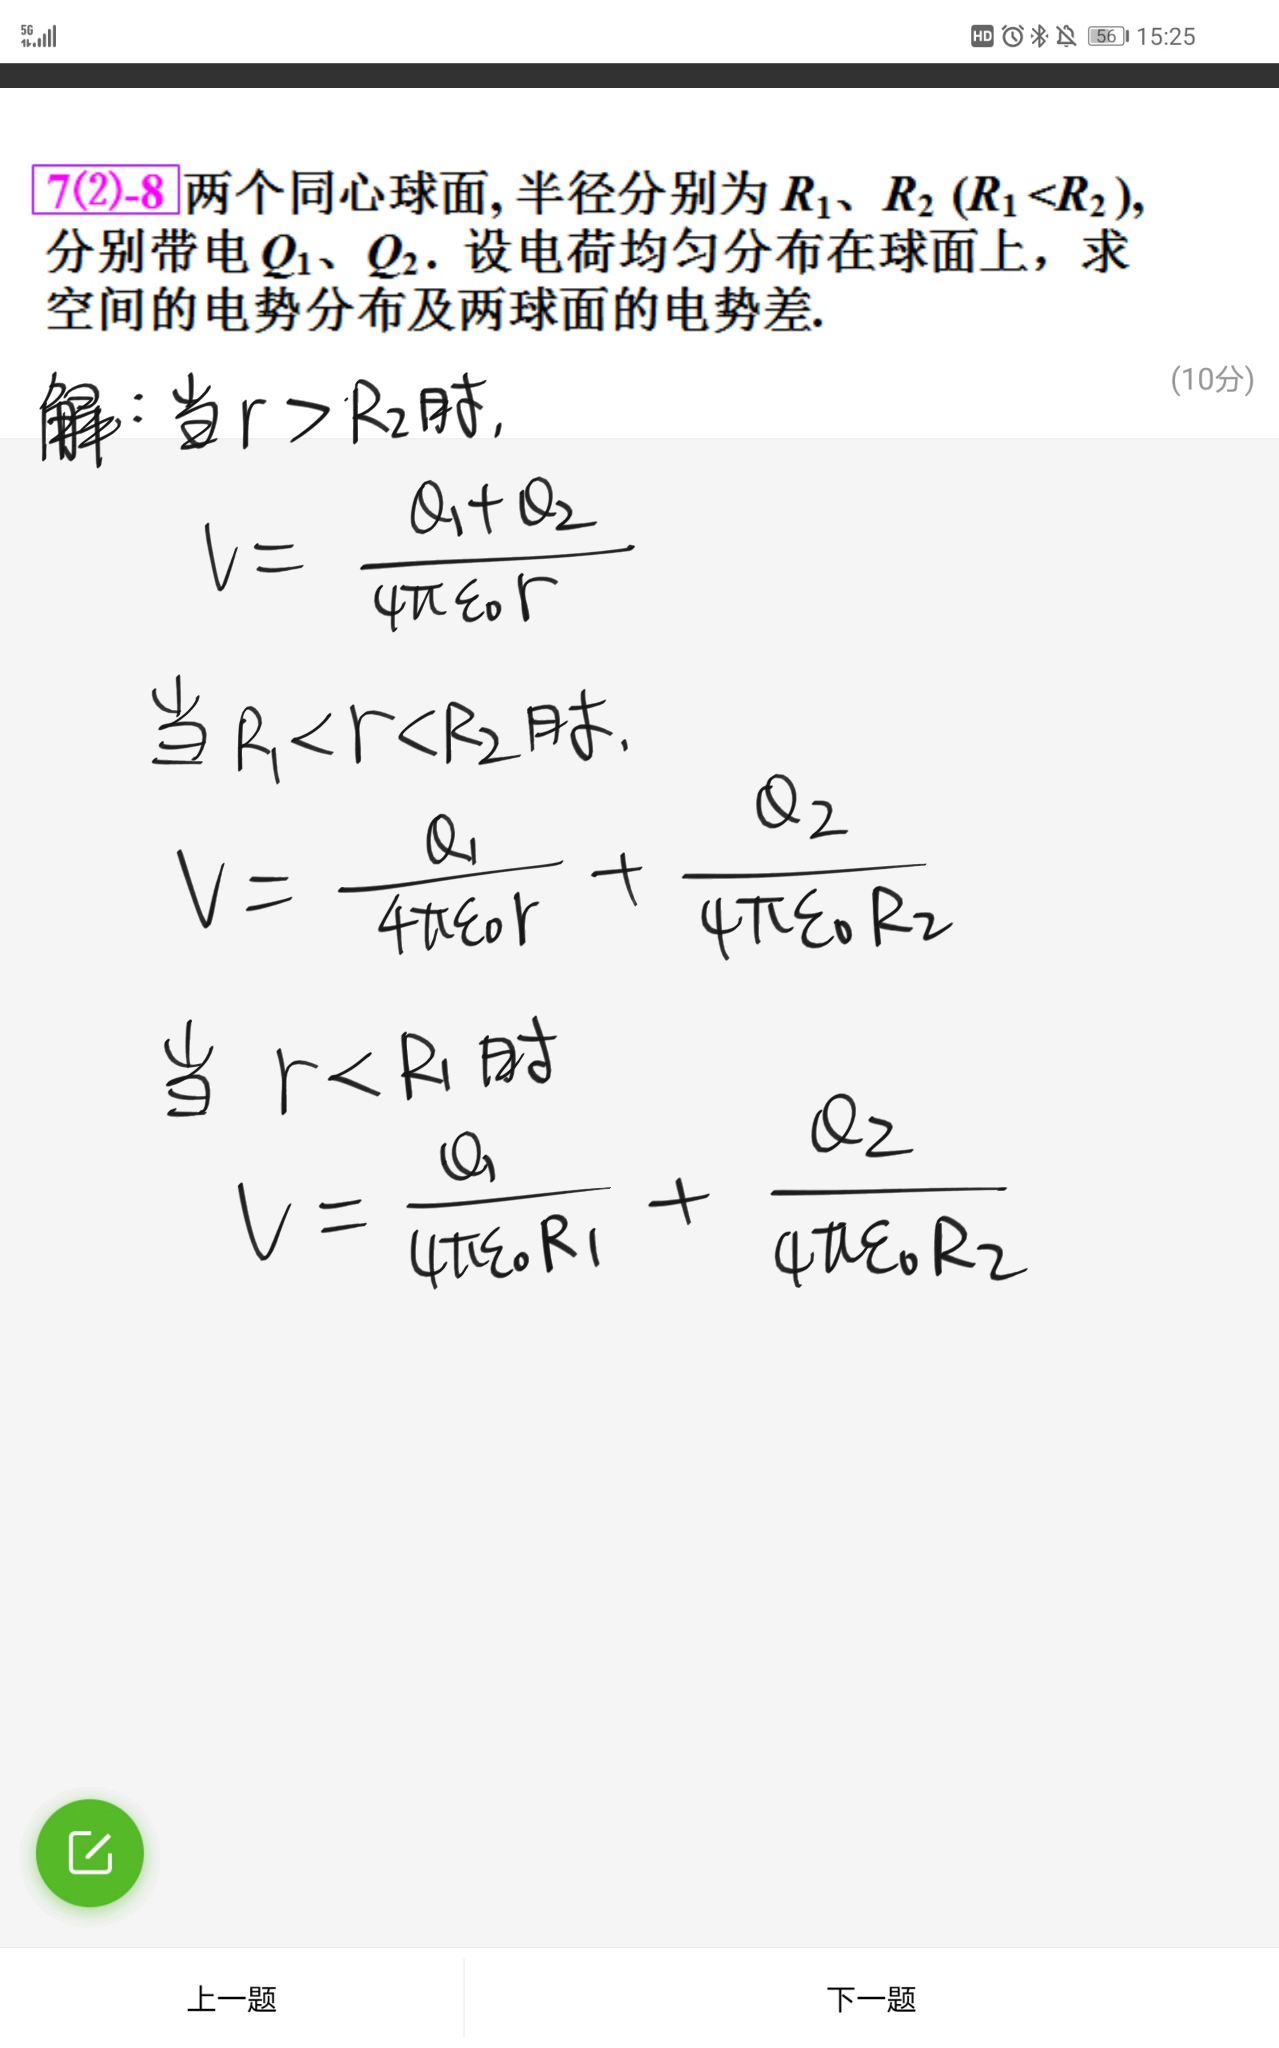 5G
HD 56 15:25
7(2)-8 两个同心球面, 半径分别为 R₁、R₂ (R₁<R₂),
分别带电 Q₁、Q₂. 设电荷均匀分布在球面上，求
空间的电势分布及两球面的电势差.
(10分)
解：当 r > R₂时,
V = \frac{Q₁+Q₂}{4πε₀r}
当 R₁<r<R₂时,
V = \frac{Q₁}{4πε₀r} + \frac{Q₂}{4πε₀R₂}
当 r<R₁时
V = \frac{Q₁}{4πε₀R₁} + \frac{Q₂}{4πε₀R₂}
上一题 下一题